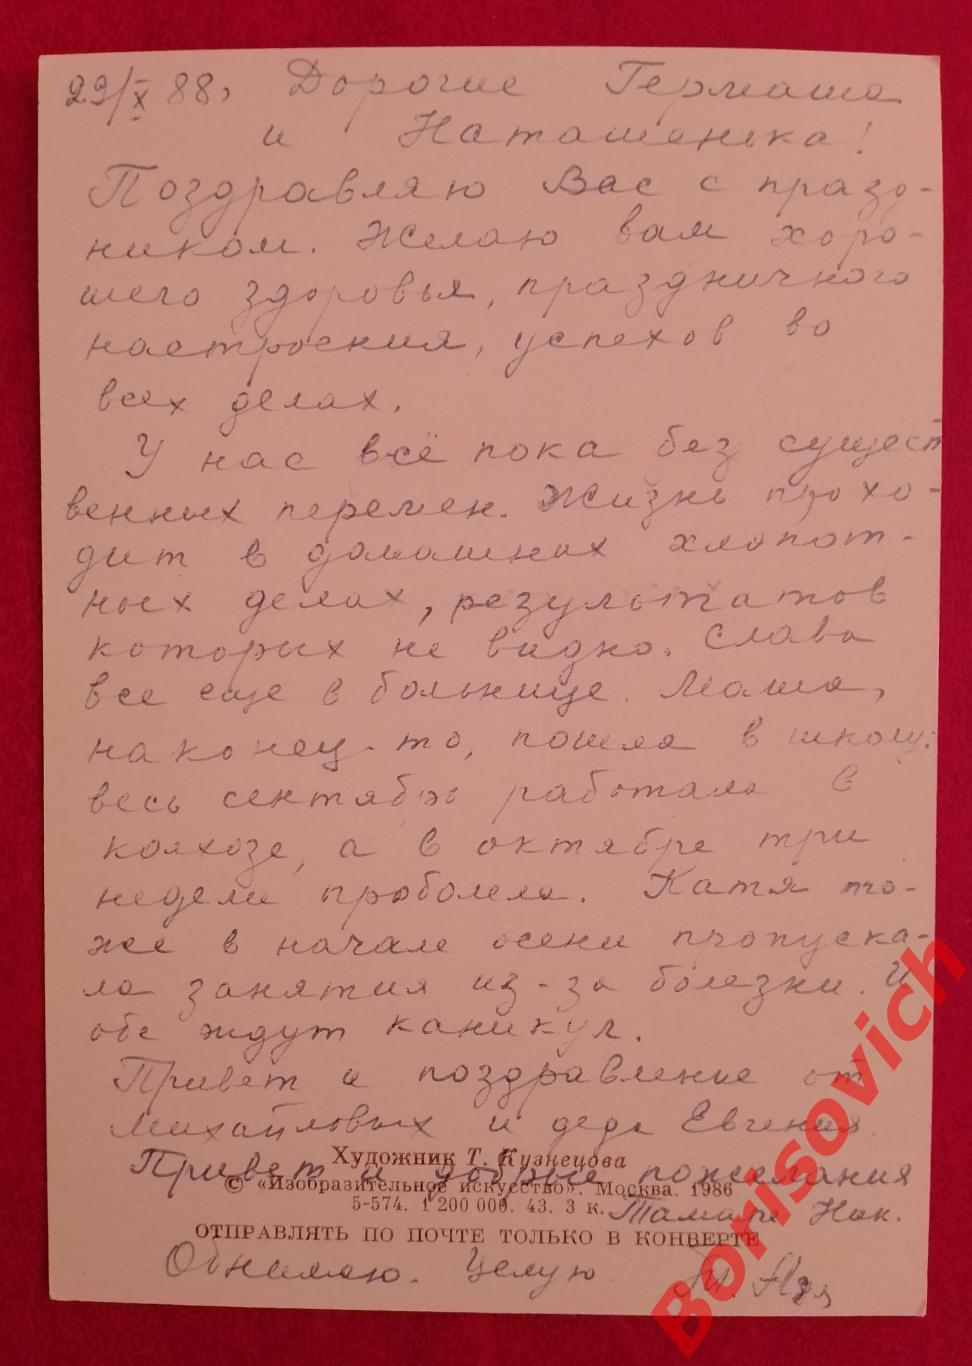 29/X 88, Дорогие Гермаша
и Наташенька!
Поздравляю Вас с празд-
ником. Желаю вам хоро-
шего здоровья, праздничного
настроения, успехов во
всех делах.
У нас всё пока без сущест
венных перемен. Жизнь прохо-
дит в домашних хлопот-
ных делах, результатов
которых не видно. Слава
все еще в больнице. Маша,
наконец-то, пошла в школу:
весь сентябрь работала в
колхозе, а в октябре три
недели проболела. Катя то-
же в начале осени пропуска-
ла занятия из-за болезни. И
обе ждут каникул.
Привет и поздравление от
Михайловых и деда Евгения.
Привет и добрые пожелания
Художник Т. Кузнецова
© «Изобразительное искусство». Москва. 1986
5-574. 1 200 000. 43. 3 к.
Тамаре Ник.
ОТПРАВЛЯТЬ ПО ПОЧТЕ ТОЛЬКО В КОНВЕРТЕ
Обнимаю. Целую
Borisovich